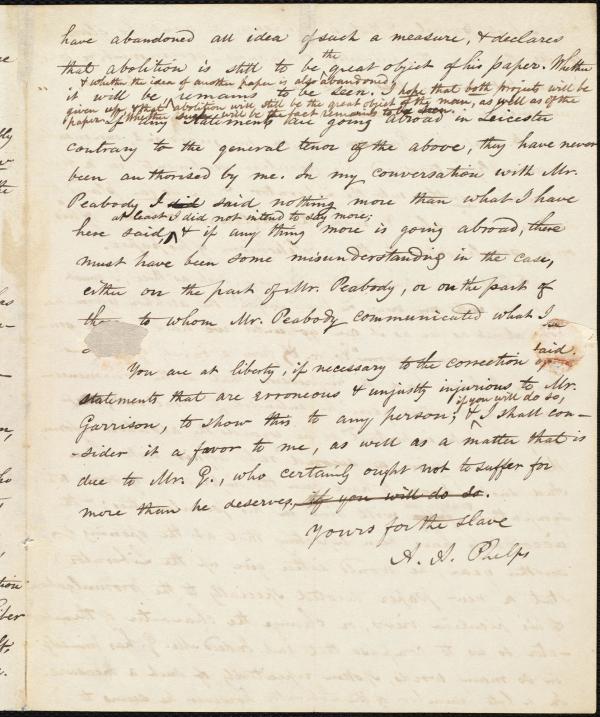 have abandoned all idea of such a measure, & declares
the
that abolition is still to be great object of his paper. Whether
& whether the idea of another paper is also abandoned,
it will be remains to be seen. I hope that both projects will be
given up, & that abolition will still be the great object of the man, as well as of the
paper. Whether such will be the fact remains to be seen.
If any statements are going abroad in Leicester
contrary to the general tenor of the above, they have never
been authorised by me. In my conversation with Mr.
Peabody I did said nothing more than what I have
at least I did not intend to say more;
here said, & if any thing more is going abroad, there
must have been some misunderstanding in the case,
either on the part of Mr. Peabody, or on the part of
to whom Mr. Peabody communicated what I
said.
You are at liberty, if necessary to the correction
statements that are erroneous & unjustly injurious to Mr.
if you will do so,
Garrison, to show this to any person; & I shall con-
-sider it a favor to me, as well as a matter that is
due to Mr. G., who certainly ought not to suffer for
more than he deserves, if you will do so.
Yours for the slave
A. A. Phelps